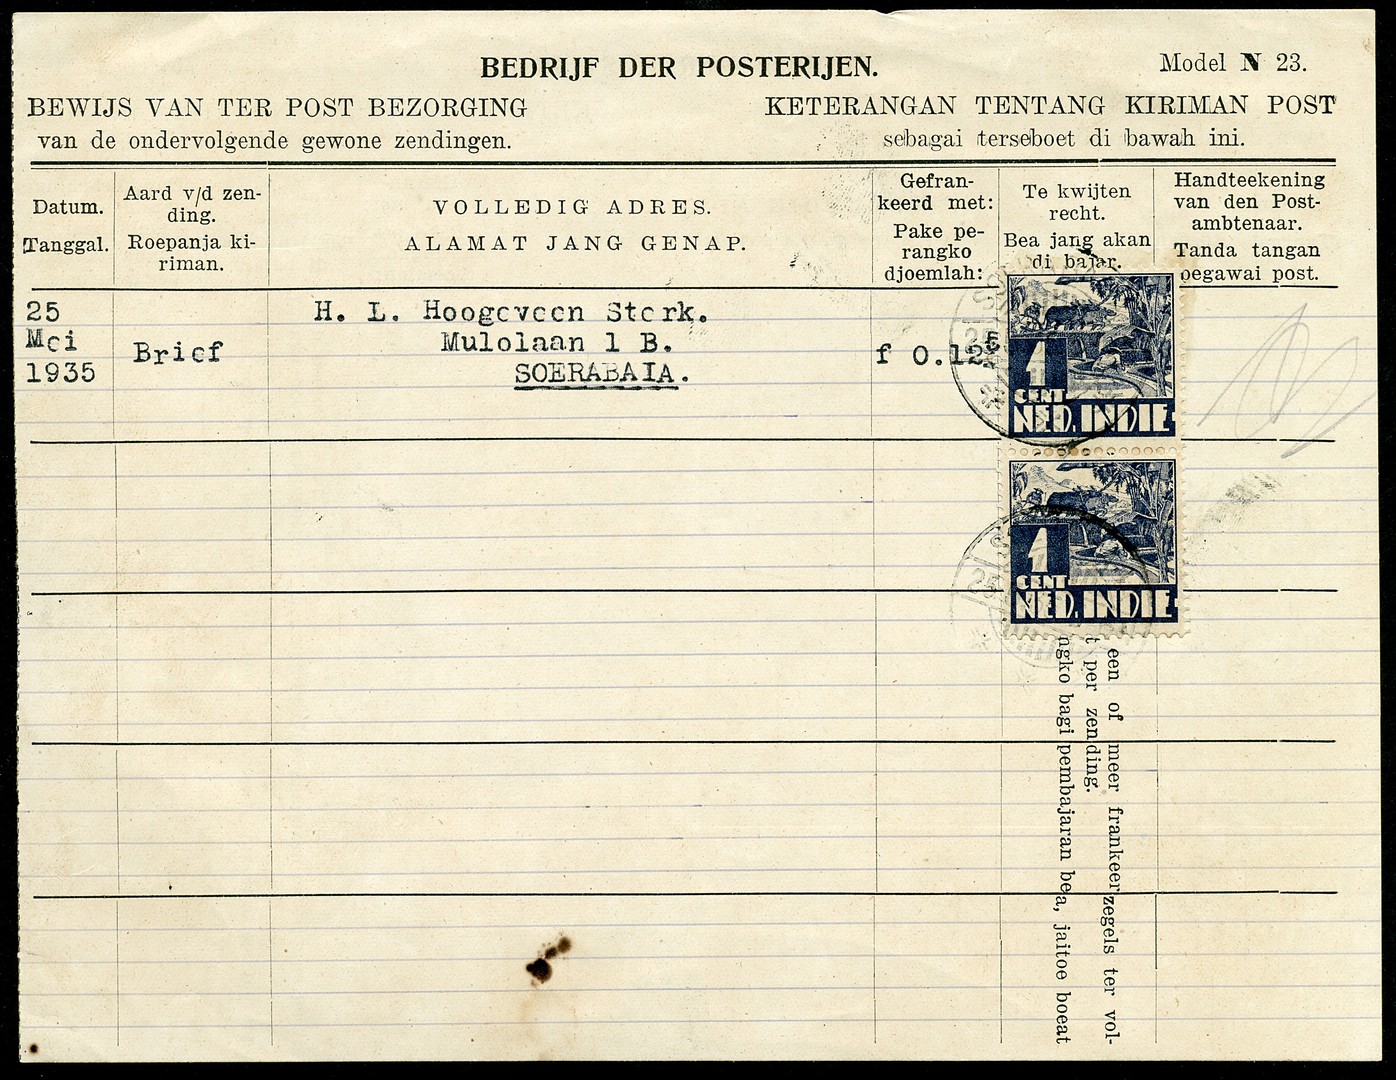 BEDRIJF DER POSTERIJEN.
Model N 23.
BEWIJS VAN TER POST BEZORGING
van de ondervolgende gewone zendingen.
KETERANGAN TENTANG KIRIMAN POST
sebagai terseboet di bawah ini.
Datum.
Tanggal.
Aard v/d zen-
ding.
Roepanja ki-
riman.
VOLLEDIG ADRES.
ALAMAT JANG GENAP.
Gefran-
keerd met:
Pake pe-
rangko
djoemlah:
Te kwijten
recht.
Bea jang akan
di bajar.
Handteekening
van den Post-
ambtenaar.
Tanda tangan
pegawai post.
25
Mei
1935
Brief
H. L. Hoogeveen Sterk.
Mulolaan 1 B.
SOERABAIA.
f 0.125
25
1
CENT
NED. INDIE
25
1
CENT
NED. INDIE
een of meer frankeerzegels ter vol-
t per zending.
ngko bagi pembajaran bea, jaitoe boeat